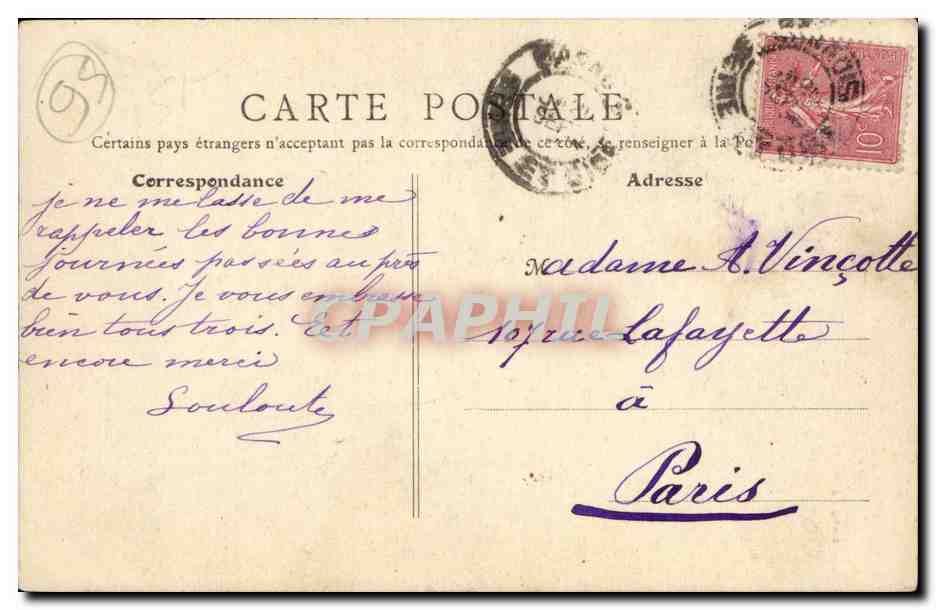 95
CARTE POSTALE
Certains pays étrangers n'acceptant pas la correspondance de ce côté, se renseigner à la Po
Correspondance
je ne me lasse de me
rappeler les bonnes
journées passées auprès
de vous. Je vous embrasse
bien tous trois. Et
encore merci
Louloute
Adresse
Madame A. Vinçotte
107 rue Lafayette
à
Paris
10c
CPAPHIL